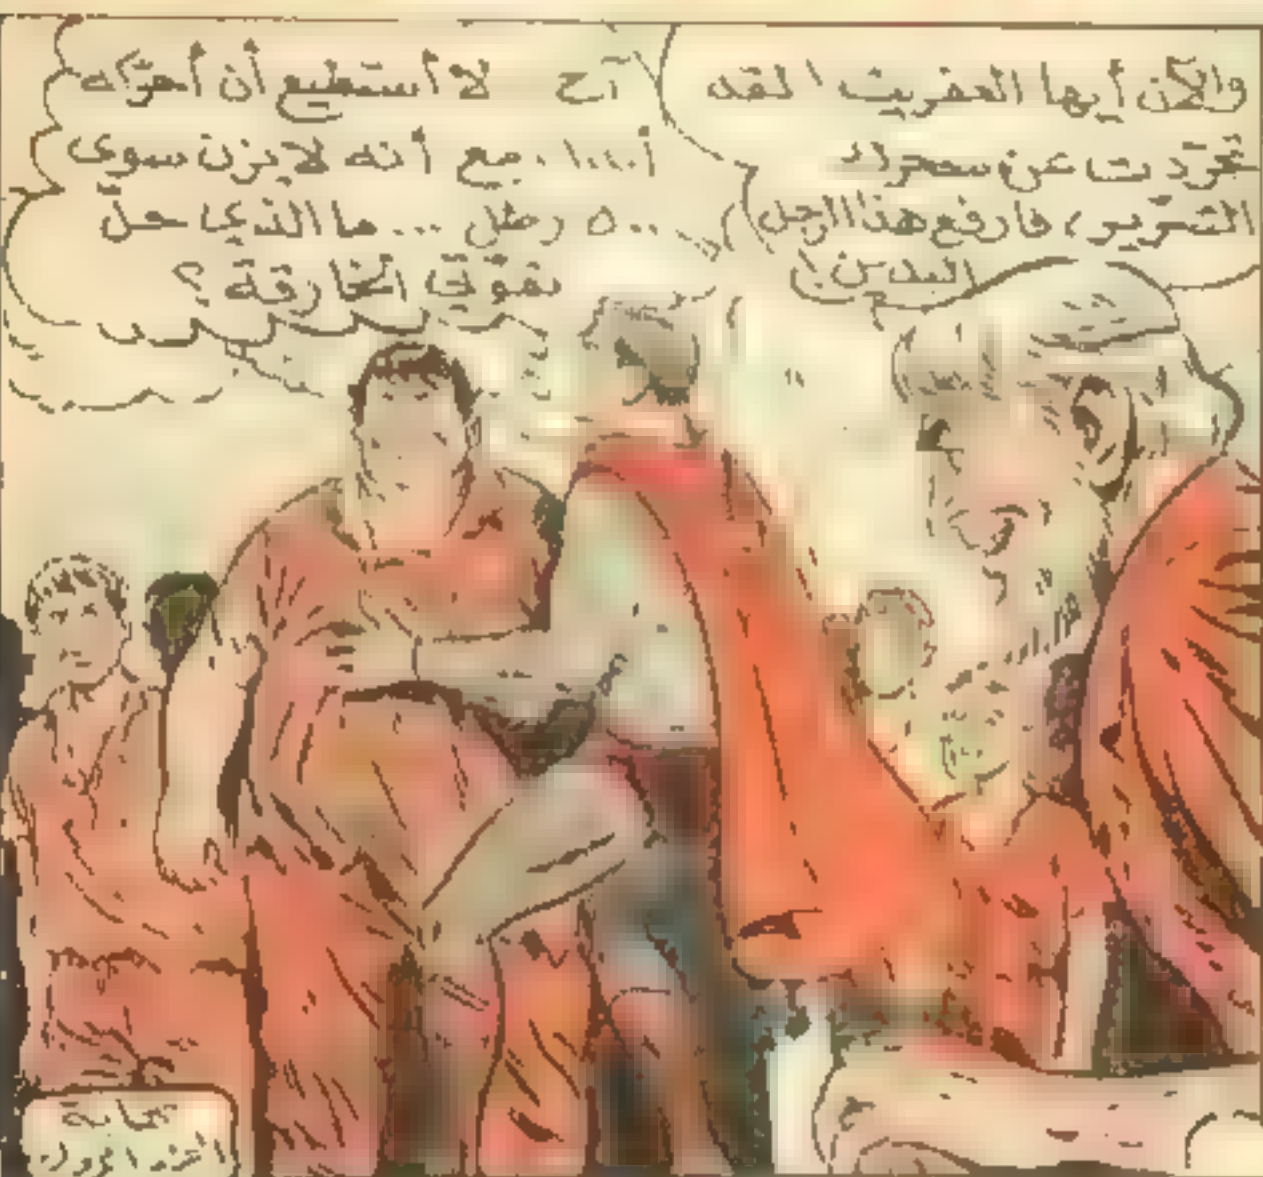 والآن أيها العفريت! لقد
تحرّدت عن سحرك
الشرّير، فارفع هذا الرجل
البدين!
آح لا أستطيع أن أحرّكه
أ...ا. مع أنه لا يزن سوى
٥٠٠ رطل ... ما الذي حلّ
بقوّتي الخارقة؟